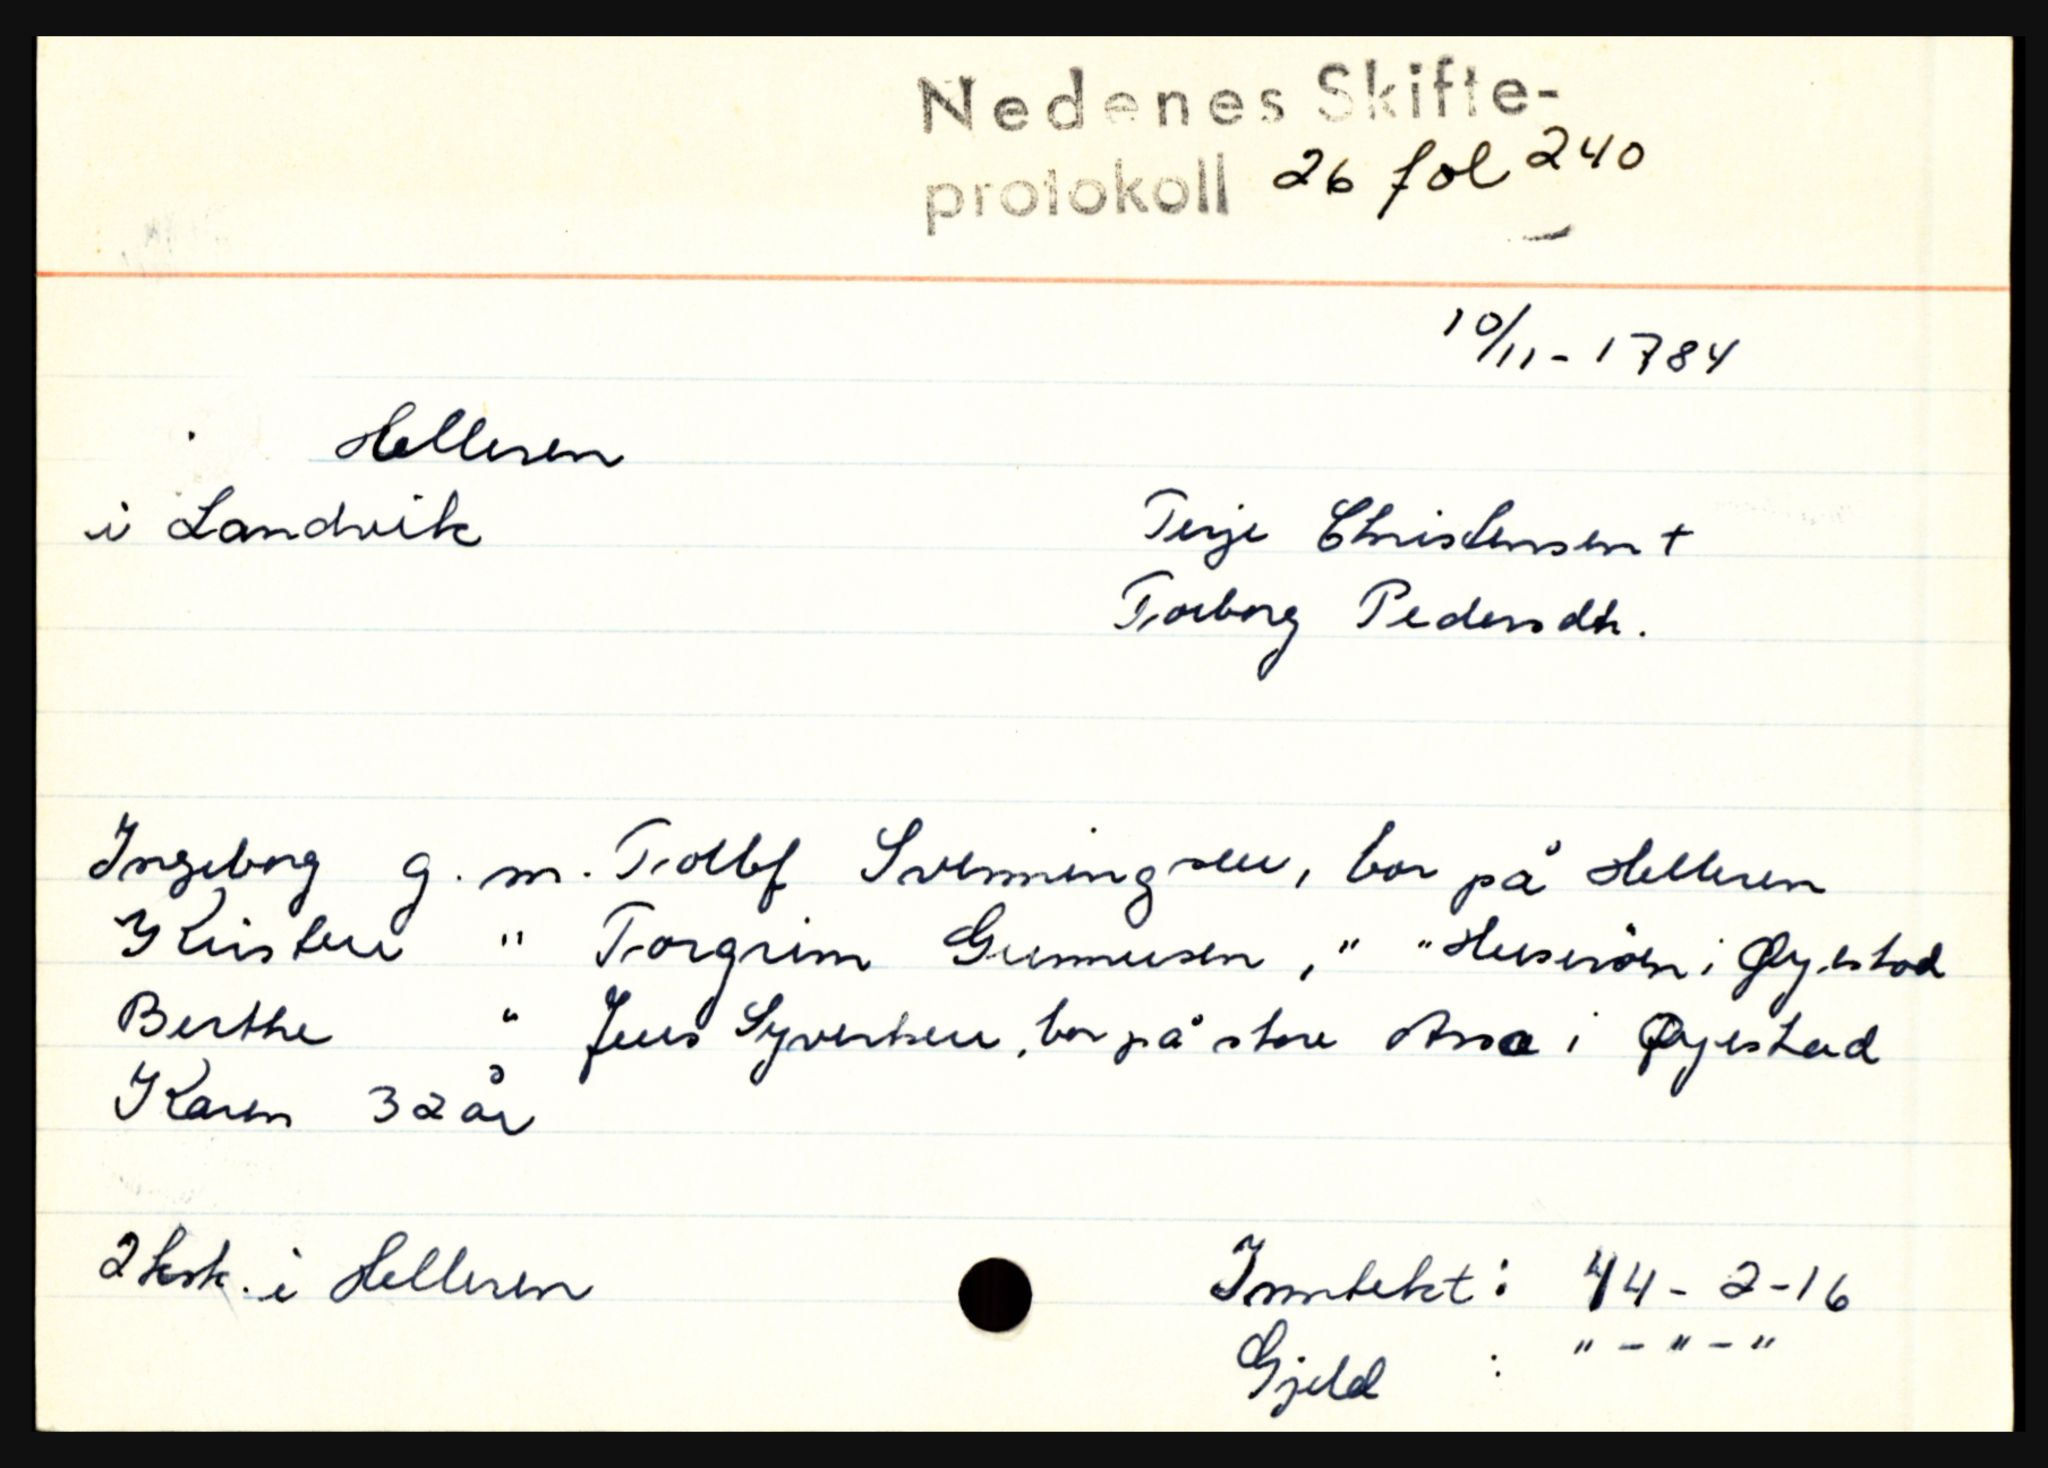 Nedenes Skifte-
protokoll 26 fol 240
10/11 - 1784
Helleren
i Landvik
Terje Christensen +
Torborg Pedersdtr.
Ingeborg g. m. Tollef Svenningsen, bor på Helleren
Kirsten " Torgrim Gunnersen, " " i Øyestad
Berthe " Jens Syvertsen, bor på store Assa i Øyestad
Karen 32 år
2 ksk. i Helleren
Inntekt : 44 - 2 - 16
Gjeld : " - " - "